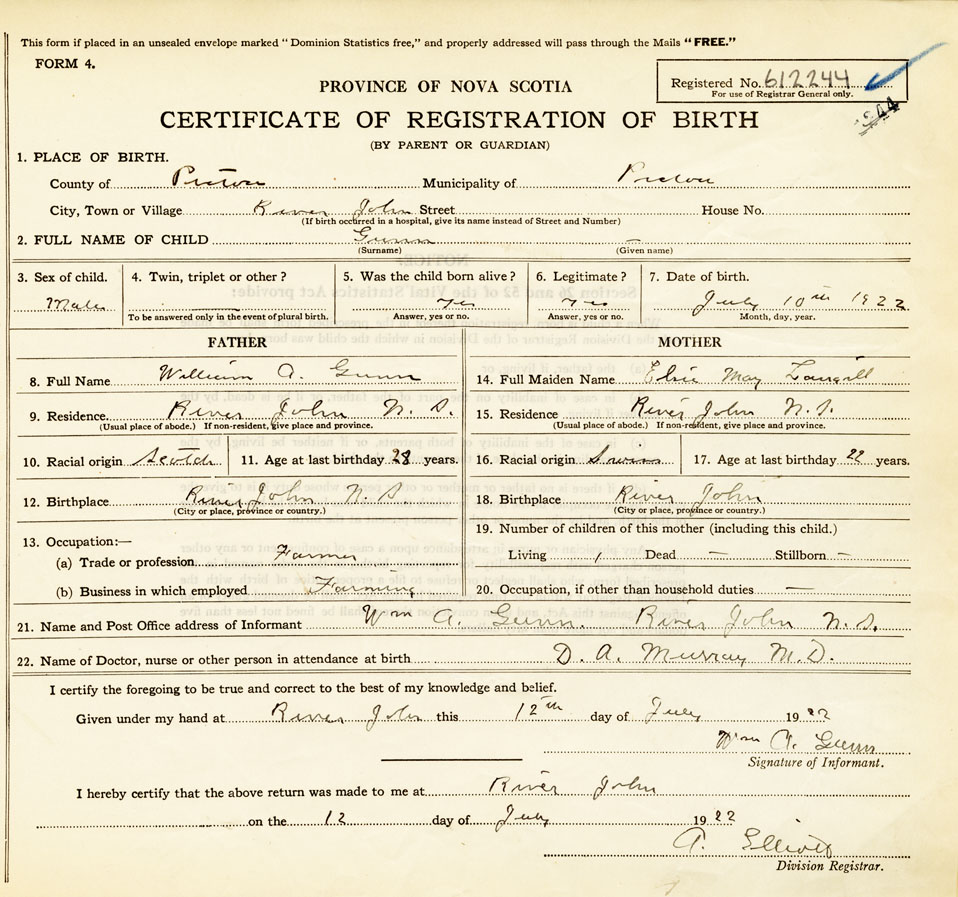 This form if placed in an unsealed envelope marked "Dominion Statistics free," and properly addressed will pass through the Mails "FREE."
FORM 4.
Registered No. 612244
For use of Registrar General only.
PROVINCE OF NOVA SCOTIA
CERTIFICATE OF REGISTRATION OF BIRTH
(BY PARENT OR GUARDIAN)
1. PLACE OF BIRTH.
County of Pictou Municipality of Pictou
City, Town or Village River John Street House No.
(If birth occurred in a hospital, give its name instead of Street and Number)
2. FULL NAME OF CHILD Gunn —
(Surname) (Given name)
3. Sex of child. 4. Twin, triplet or other? 5. Was the child born alive? 6. Legitimate? 7. Date of birth.
Male — yes yes July 10th 1922
To be answered only in the event of plural birth. Answer, yes or no. Answer, yes or no. Month, day, year.
FATHER MOTHER
8. Full Name William A. Gunn 14. Full Maiden Name Elsie May Langill
9. Residence River John N. S. 15. Residence River John N. S.
(Usual place of abode.) If non-resident, give place and province. (Usual place of abode.) If non-resident, give place and province.
10. Racial origin Scotch 11. Age at last birthday 28 years. 16. Racial origin Swiss 17. Age at last birthday 22 years.
12. Birthplace River John N. S 18. Birthplace River John
(City or place, province or country.) (City or place, province or country.)
19. Number of children of this mother (including this child.)
13. Occupation:—
(a) Trade or profession Farmer Living 1 Dead — Stillborn —
(b) Business in which employed Farming 20. Occupation, if other than household duties —
21. Name and Post Office address of Informant Wm A. Gunn. River John N. S.
22. Name of Doctor, nurse or other person in attendance at birth D. A. Murray M. D.
I certify the foregoing to be true and correct to the best of my knowledge and belief.
Given under my hand at River John this 12th day of July 1922
Wm A. Gunn
Signature of Informant.
I hereby certify that the above return was made to me at River John
on the 12 day of July 1922
A. Elliott
Division Registrar.